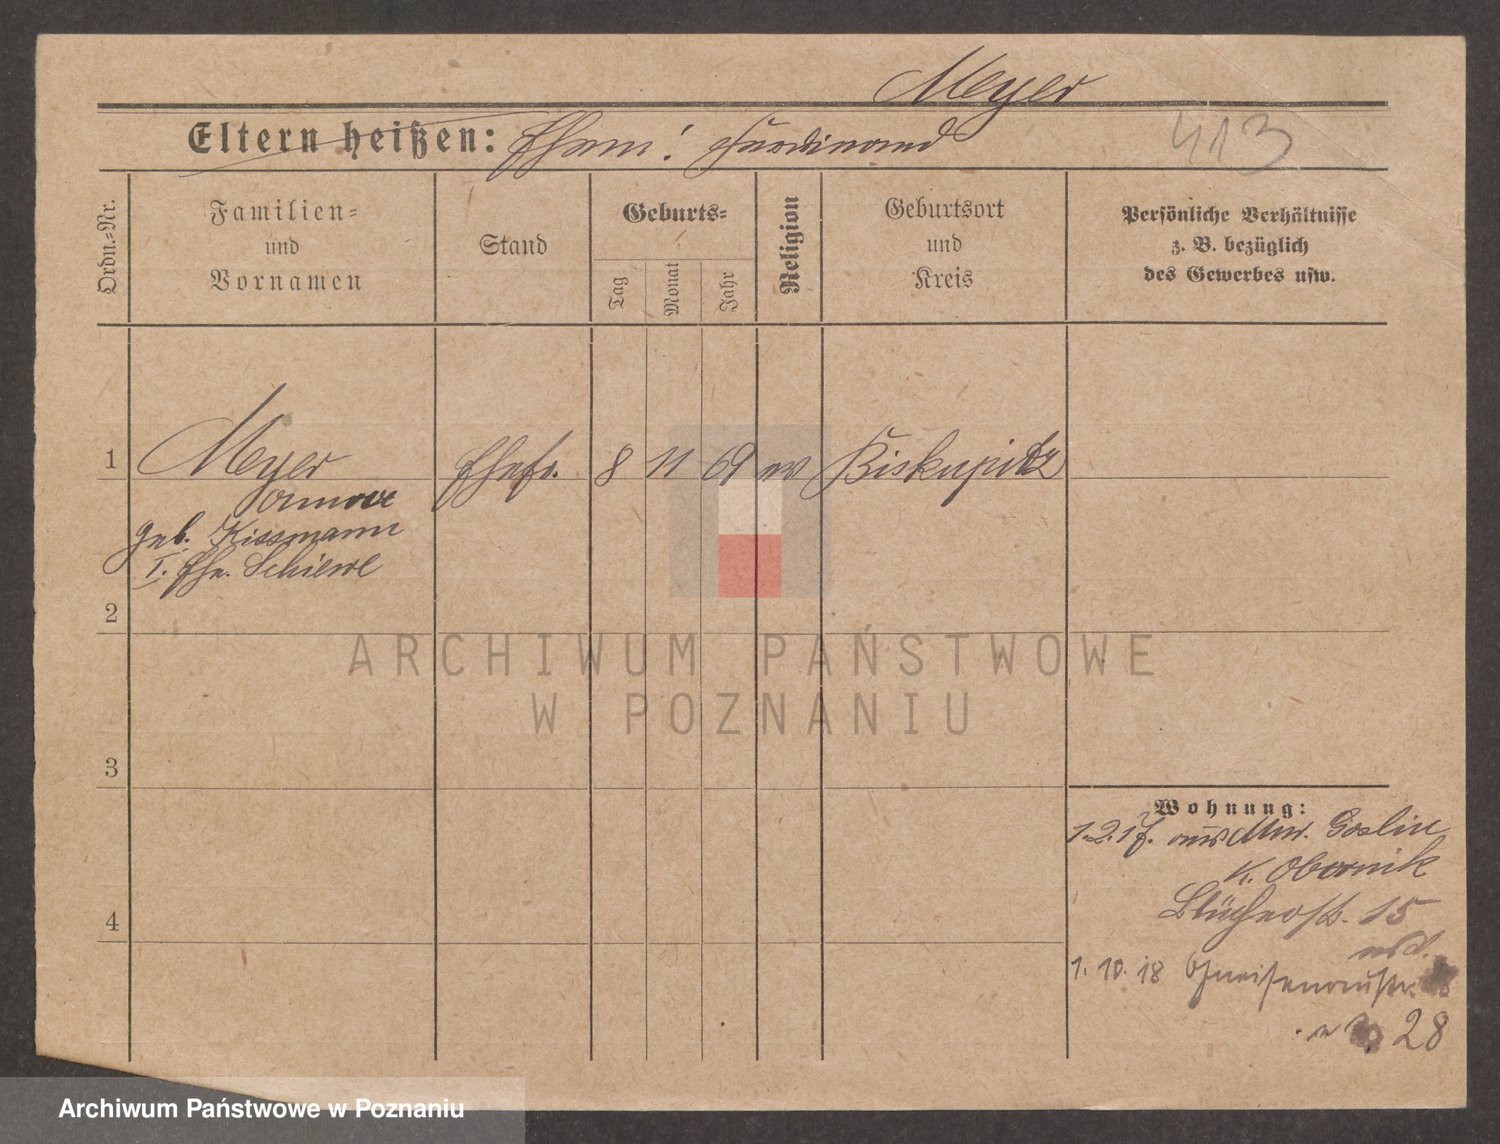 Meyer
Eltern heißen: Ehem: Ferdinand
413
Ordn.=Nr.
Familien=
und
Vornamen
Stand
Geburts=
Tag
Monat
Jahr
Religion
Geburtsort
und
Kreis
Persönliche Verhältnisse
z. B. bezüglich
des Gewerbes usw.
1
Meyer Ehefr. 8 11 69 ev Biskupitz
Anna
geb. Kissmann
I. Ehe. Schiewe
2
3
4
ARCHIWUM PAŃSTWOWE
W POZNANIU
Wohnung:
1.2.17. aus Mur. Goslin
K. Obornik
Blücherstr. 15
1.10.18 Gneisenaustr.
28
Archiwum Państwowe w Poznaniu